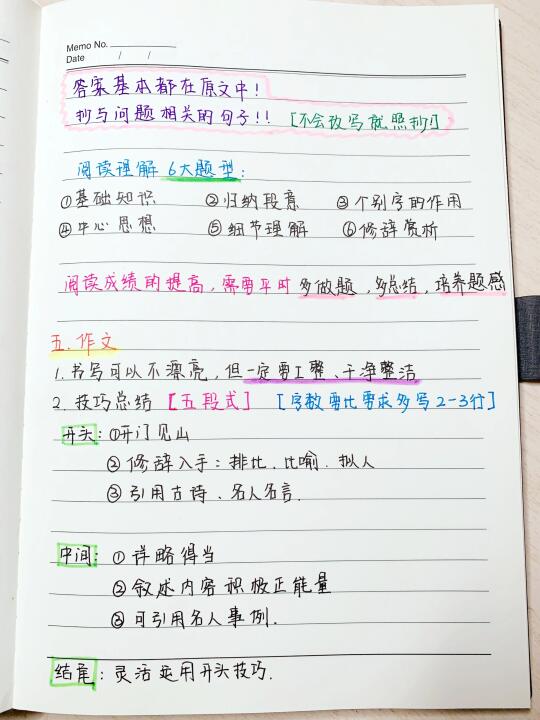 Memo No.
Date / /
答案基本都在原文中!
抄与问题相关的句子!! [不会改写就照抄!]
阅读理解 6大题型:
①基础知识 ②归纳段意 ③个别字的作用
④中心思想 ⑤细节理解 ⑥修辞赏析
阅读成绩的提高,需要平时多做题,多总结,培养题感
五.作文
1.书写可以不漂亮,但一定要工整、干净整洁
2.技巧总结【五段式】[字数要比要求多写2-3行]
开头:①开门见山
②修辞入手:排比.比喻.拟人
③引用古诗、名人名言.
中间:①详略得当
②叙述内容积极正能量
③可引用名人事例.
结尾:灵活运用开头技巧.